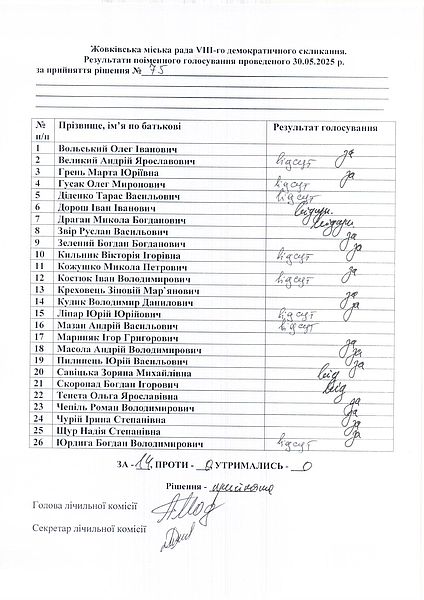 Жовківська міська рада VIII-го демократичного скликання.
Результати поіменного голосування проведеного 30.05.2025 р.
за прийняття рішення № 75
№ п/п Прізвище, ім’я по батькові Результат голосування
1 Вольський Олег Іванович за
2 Великий Андрій Ярославович відсут
3 Грень Марта Юріївна за
4 Гусак Олег Миронович відсут
5 Діденко Тарас Васильович відсут
6 Дорош Іван Іванович
7 Драган Микола Богданович
8 Звір Руслан Васильович за
9 Зелений Богдан Богданович за
10 Кильник Вікторія Ігорівна відсут
11 Кожушко Микола Петрович за
12 Костюк Іван Володимирович відсут
13 Креховець Зіновій Мар`янович за
14 Кудик Володимир Данилович за
15 Ліпар Юрій Юрійович відсут
16 Мазан Андрій Васильович відсут
17 Мариняк Ігор Григорович за
18 Масола Андрій Володимирович за
19 Пилипець Юрій Васильович за
20 Савіцька Зоряна Михайлівна від
21 Скоропад Богдан Ігорович від
22 Тенета Ольга Ярославівна за
23 Чепіль Роман Володимирович за
24 Чурій Ірина Степанівна за
25 Щур Надія Степанівна за
26 Юрдига Богдан Володимирович відсут
ЗА - 14, ПРОТИ - 0 УТРИМАЛИСЬ - 0
Рішення - прийнято
Голова лічильної комісії
Секретар лічильної комісії